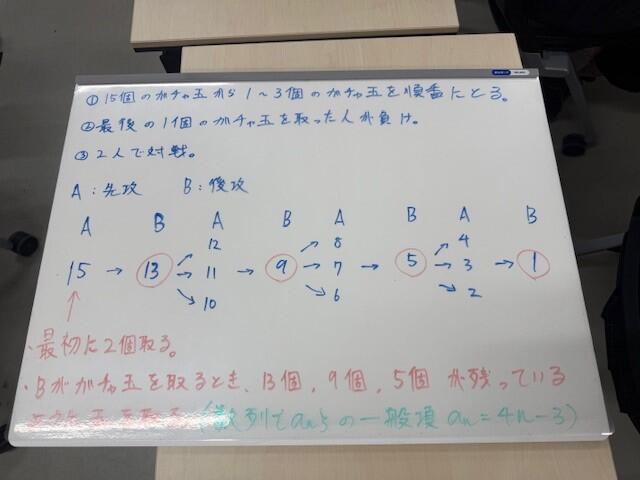 ① 15個のガチャ玉から1〜3個のガチャ玉を順番にとる。
②最後の1個のガチャ玉を取った人が負け。
③ 2人で対戦。
A：先攻 B：後攻
A B A B A B A B
12 8 4
15 → 13 → 11 → 9 → 7 → 5 → 3 → 1
10 6 2
・最初に2個取る。
・Bがガチャ玉を取るとき、13個，9個，5個 が残っている
ように玉を取る (数列{an}の一般項 an = 4n-3)